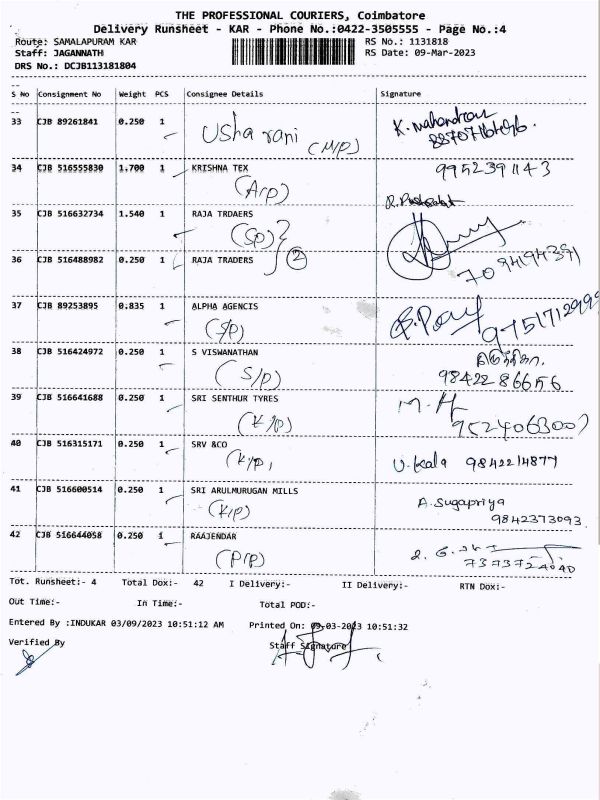 THE PROFESSIONAL COURIERS, Coimbatore
Delivery Runsheet - KAR - Phone No.:0422-3505555 - Page No.:4
Route: SAMALAPURAM KAR RS No.: 1131818
Staff: JAGANNATH RS Date: 09-Mar-2023
DRS No.: DCJB113181804
S No Consignment No Weight PCS Consignee Details Signature
33 CJB 89261841 0.250 1 Usha rani K. mahendran
(M/p)
34 CJB 516555830 1.700 1 KRISHNA TEX 9952391143
(A/p)
35 CJB 516632734 1.540 1 RAJA TRDAERS
(S/p)
36 CJB 516488982 0.250 1 RAJA TRADERS 2 7094194391
37 CJB 89253895 0.835 1 ALPHA AGENCIS 9751712999
(S/p)
38 CJB 516424972 0.250 1 S VISWANATHAN
(S/p) 9842286656
39 CJB 516641688 0.250 1 SRI SENTHUR TYRES M.H
(K/p) 9524063007
40 CJB 516315171 0.250 1 SRV &CO U. Kala 9842214877
(K/p)
41 CJB 516600514 0.250 1 SRI ARULMURUGAN MILLS A. Sugapriya
(K/p) 9842373093
42 CJB 516644058 0.250 1 RAAJENDAR
(P/p) 7373724040
Tot. Runsheet:- 4 Total Dox:- 42 I Delivery:- II Delivery:- RTN Dox:-
Out Time:- In Time:- Total POD:-
Entered By :INDUKAR 03/09/2023 10:51:12 AM Printed On: 09-03-2023 10:51:32
Verified By Staff Signature